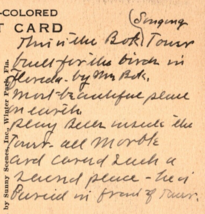 -COLORED
T CARD
(Singing
This is the Bok Tower
built for the birds in
Florida - by Mr Bok.
most beautiful place
on earth
Bells inside the
Tower - all Marble
and carved such a
place - he is
buried in front of Tower.
by Sunny Scenes, Inc., Winter Park, Fla.